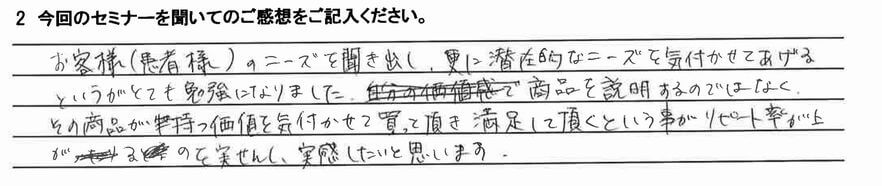 2 今回のセミナーを聞いてのご感想をご記入ください。
お客様(患者様)のニーズを聞き出し、更に潜在的なニーズを気付かせてあげる
というがとても勉強になりました。自分の価値感で商品を説明するのではなく、
その商品が持つ価値を気付かせて買って頂き満足して頂くという事がリピート率が上
がるのを実せんし、実感したいと思います。